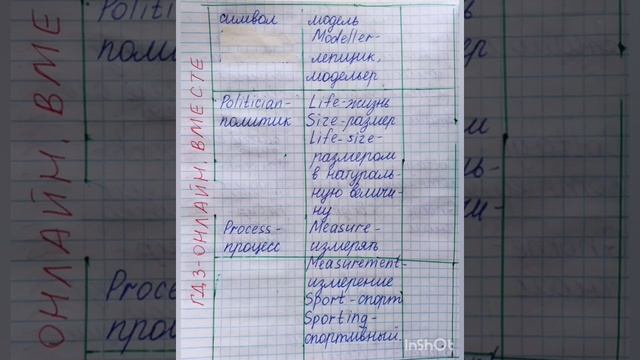 символ
модель
Modeller-
лепщик,
модельер
Politician-
политик
Life-жизнь
Size-размер
Life-size-
размером
в натураль-
ную величи-
ну
Process-
процесс
Measure-
измерять
Measurement-
измерение
Sport-спорт
Sporting-
спортивный.
ГДЗ-ОНЛАЙН. ВМЕСТЕ
ОНЛАЙН. ВМЕ
Proce
проц
InShOt